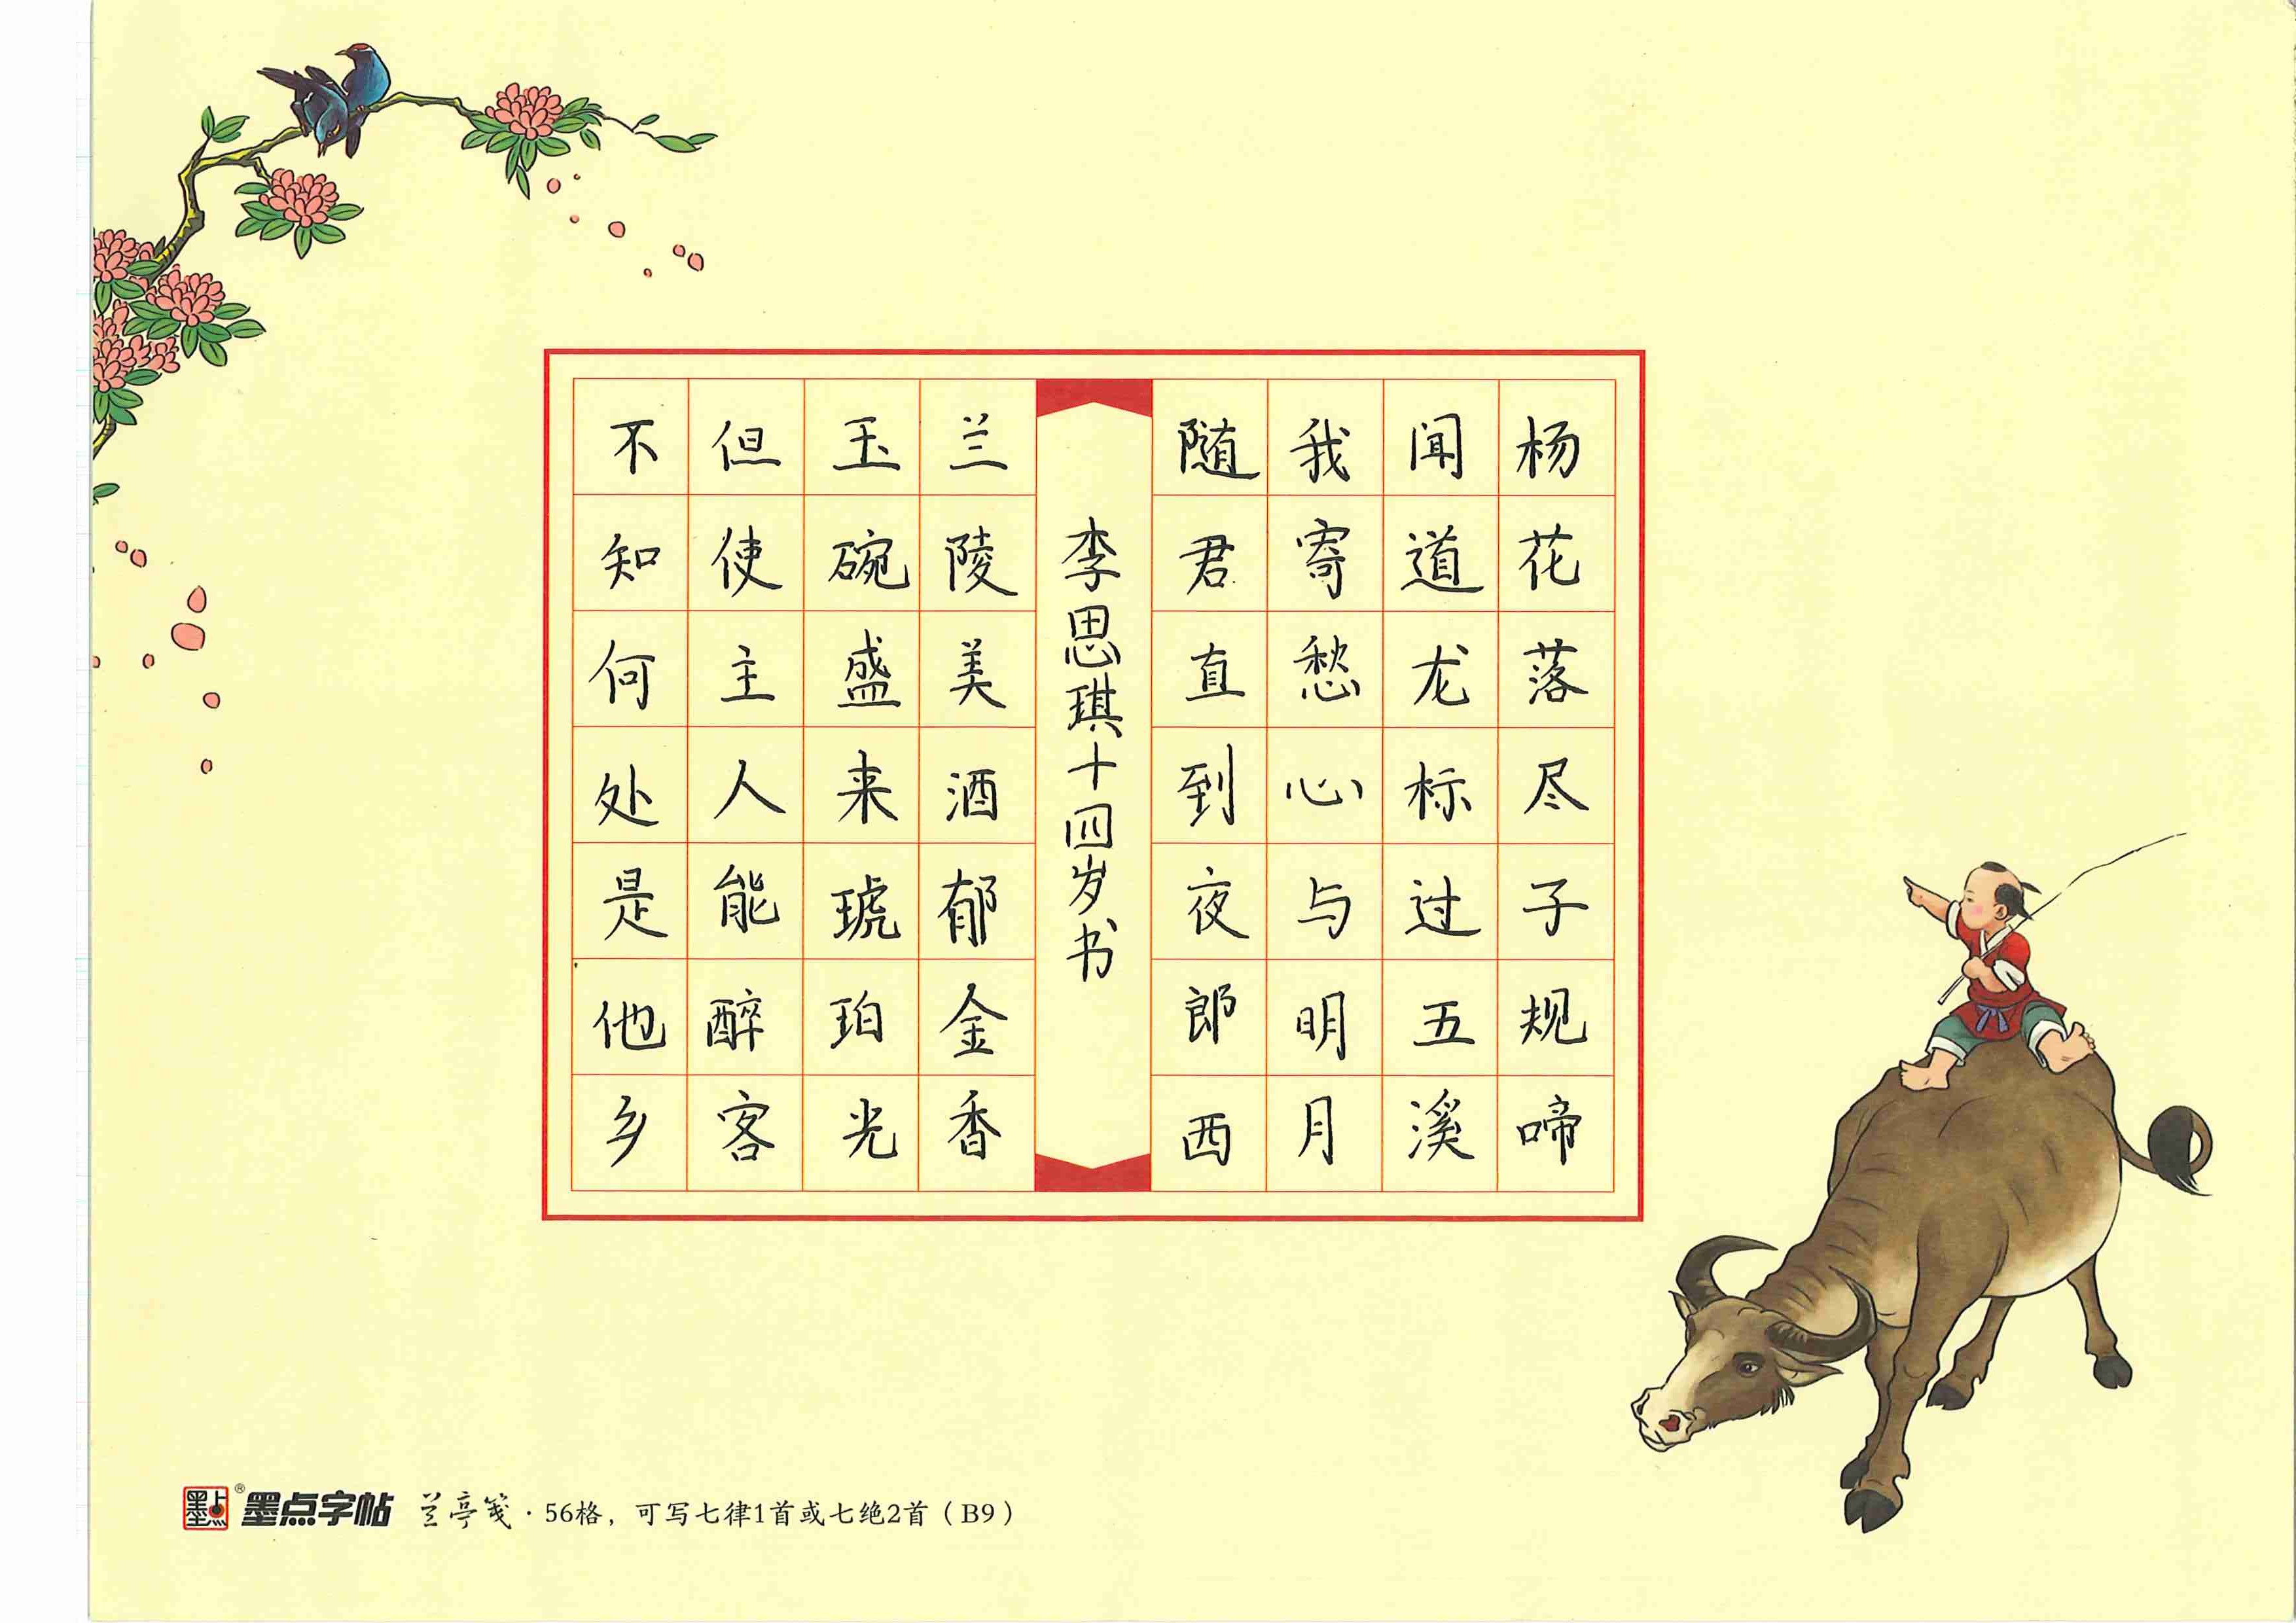 杨花落尽子规啼
闻道龙标过五溪
我寄愁心与明月
随君直到夜郎西
李思琪十四岁书
兰陵美酒郁金香
玉碗盛来琥珀光
但使主人能醉客
不知何处是他乡
墨点® 墨点字帖 兰亭笺·56格，可写七律1首或七绝2首（B9）